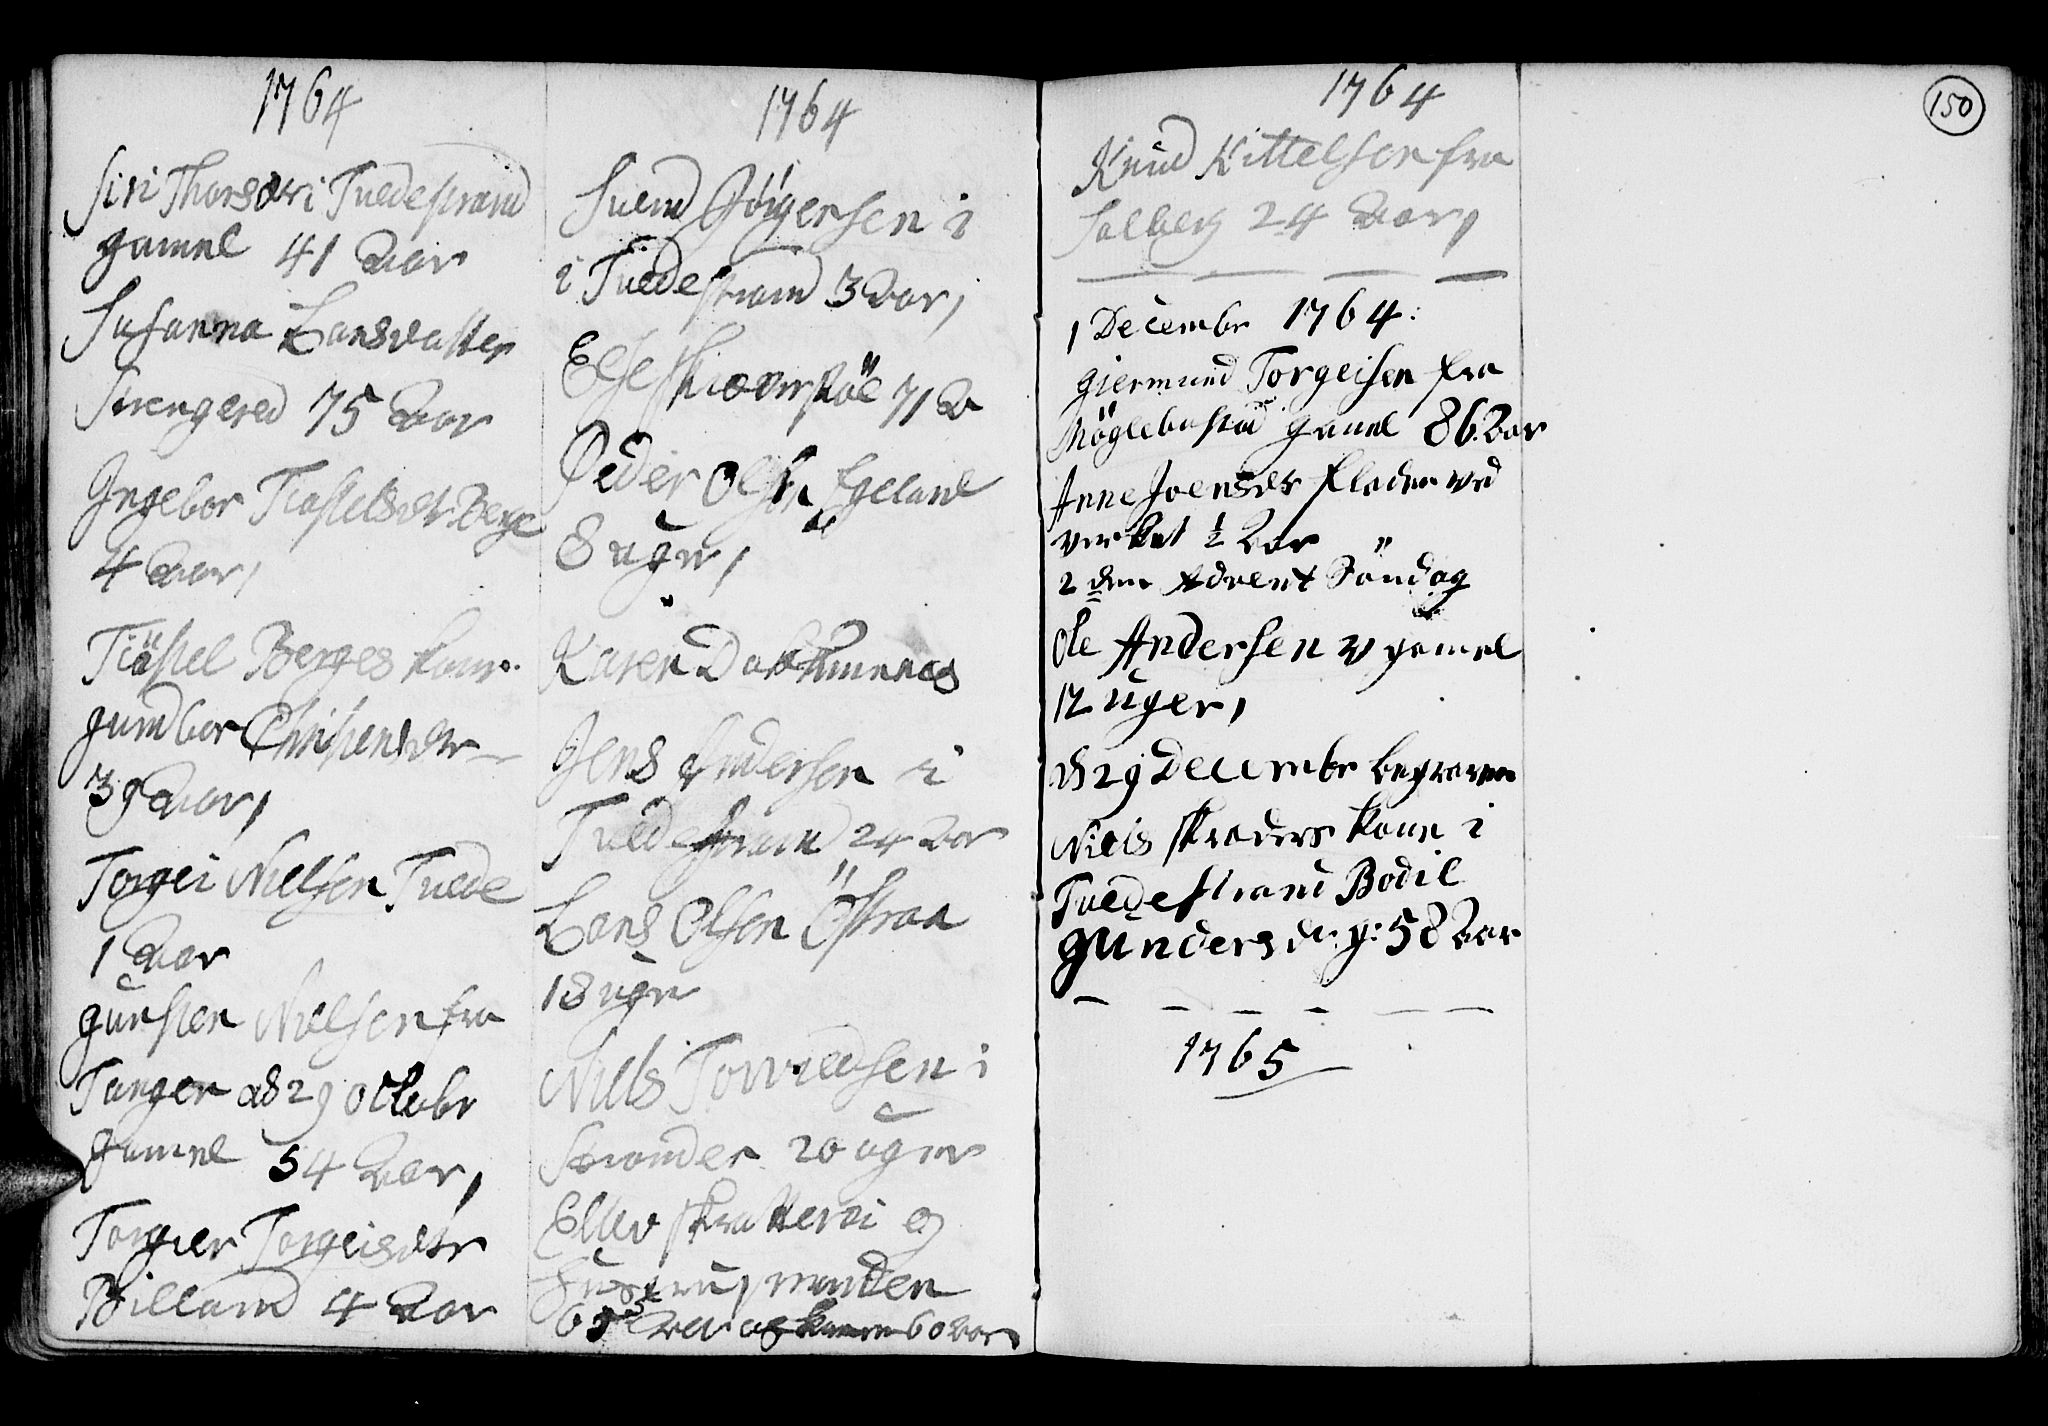 1764
Siri Thorsdtr i Tuedestrand
gamel 41 Aar
Susanna Larsdatter
Strengered 75 Aar
Ingebor Tiostelsdtr Berge
4 Aar,
Tiöstel Berges kone
gundbor Christensdtr
39 Aar,
Torgei Nielsen Tuede
1 Aar
gunsten Nielsen fra
Tanger d 29 octobr
gamel 54 Aar,
Torgier Torgeisdtr
Billand 4 Aar
1764
Suend Jörgensen i
i Tuedestrand 3 Aar,
Else Skiæverstöl 71 A
Peder Olsen Egeland
8 uger,
Karen
Jens Andersen i
Tuedestrand 24 Aar
Lars Olsen Östraa
18 uger
Niels Torvildsen i
Strander 20 uger
Ellev skratterei og
hustru, manden
Aar og konen 60 Aar
1764
Knud Kittelsen fra
Solberg 24 Aar,
1 Decembr 1764:
giermund Torgeisen fra
Möglebustad gamel 86 Aar
Anne Joensdtr Fladen ved
verket ½ Aar
2den Advent Söndag
Ole Andersen gamel
12 uger,
d 29 Decembr begraven
Niels skreders kone i
Tuedestrand Bodil
gundersd. g: 58 Aar
1765
150